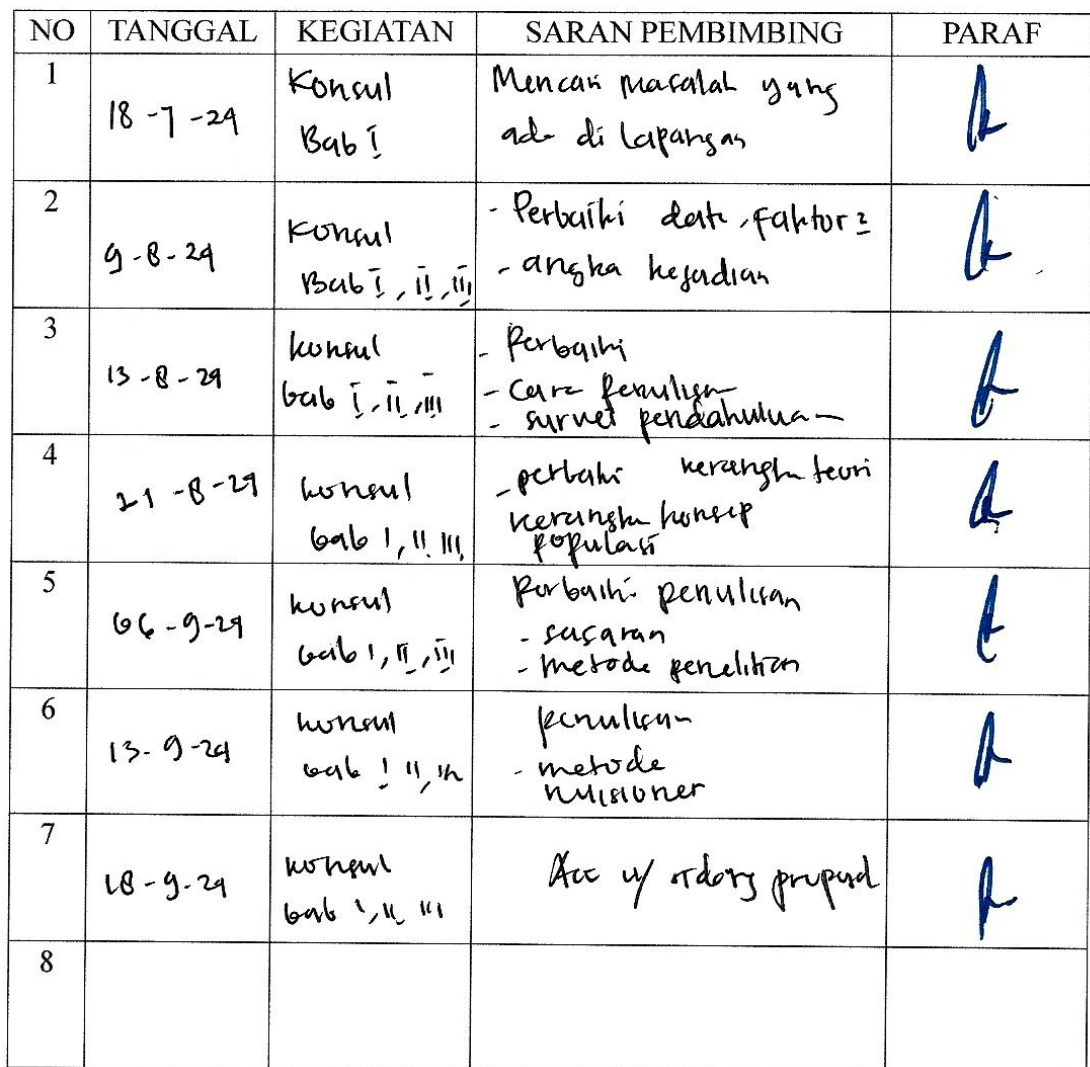 NO TANGGAL KEGIATAN SARAN PEMBIMBING PARAF
1
18 - 7 - 24
Konsul
Bab I
Mencari masalah yang
ada di lapangan
2
9 - 8 - 24
Konsul
Bab I, II, III
- Perbaiki data, faktor2
- angka kejadian
3
13 - 8 - 24
konsul
bab I, II, III
- Perbaiki
- Cara penulisan
- survei pendahuluan
4
21 - 8 - 24
konsul
bab I, II, III
- perbaiki kerangka teori
kerangka konsep
populasi
5
06 - 9 - 24
konsul
bab I, II, III
Perbaiki penulisan
- sasaran
- metode penelitian
6
13 - 9 - 24
konsul
bab I, II, III
penulisan
- metode
kuisioner
7
18 - 9 - 24
konsul
bab I, II, III
Acc u/ sidang proposal
8